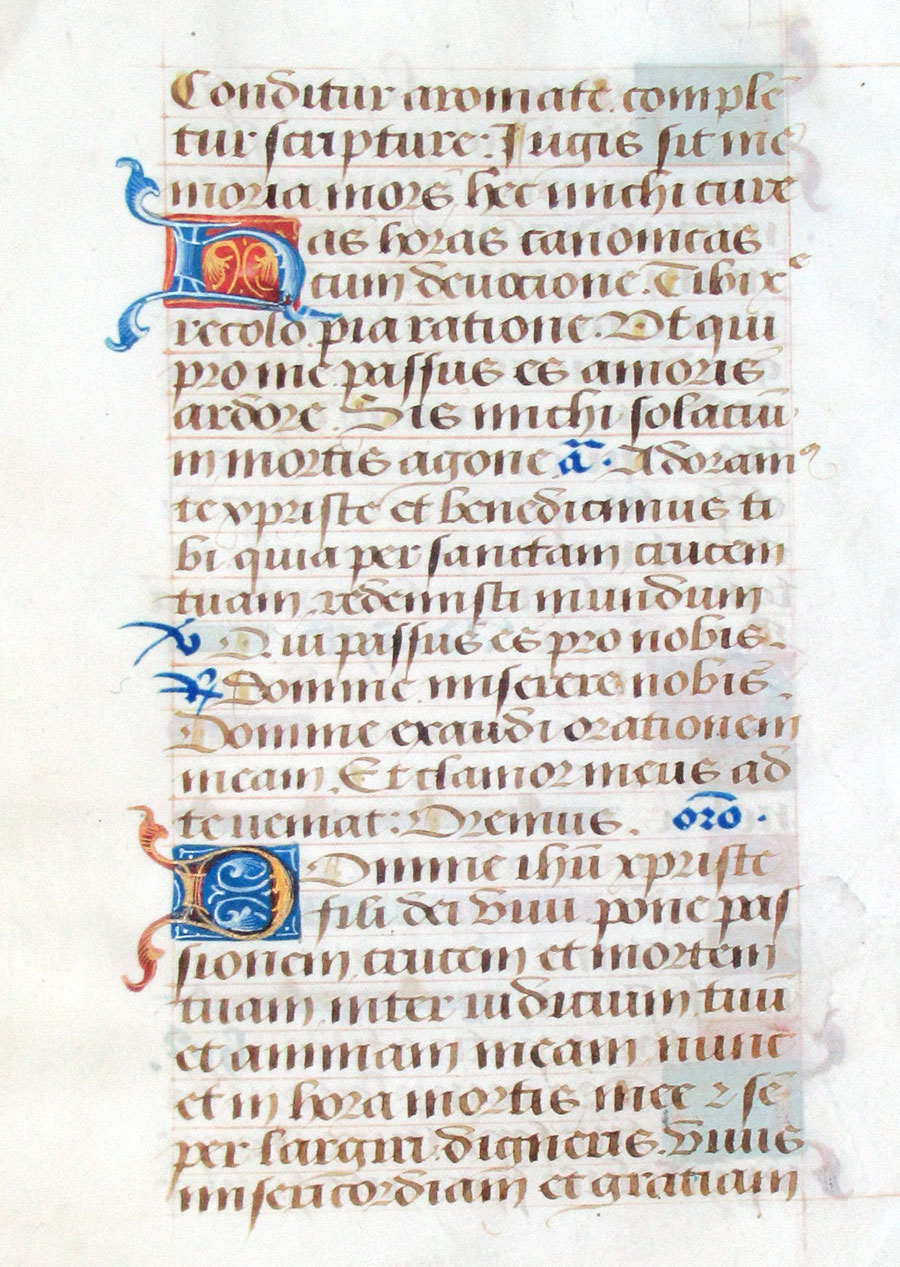 Conditur aromate. complē
tur scripture: Iugis sit me
moria mors hec michi cure
Has horas canonicas
cum deuocione. Tibi xᵉ
recolo pia ratione. Vt qui
pro me passus es amoris
ardore. Sis michi solaciū
in mortis agone ā. Adoramꝰ
te xpriste et benedicimus ti
bi quia per sanctam crucem
tuam redemisti mundum
℣ Qui passus es pro nobis.
℟ Domine miserere nobis.
Domine exaudi orationem
meam. Et clamor meus ad
te ueniat: Oremus. orō.
DOmine ihū xpriste
fili dei viui pone pas
sionem crucem et mortem
tuam inter iudicium tuū
et animam meam nunc
et in hora mortis mee ⁊ sē
per largiri digneris. viuis
misericordiam et gratiam